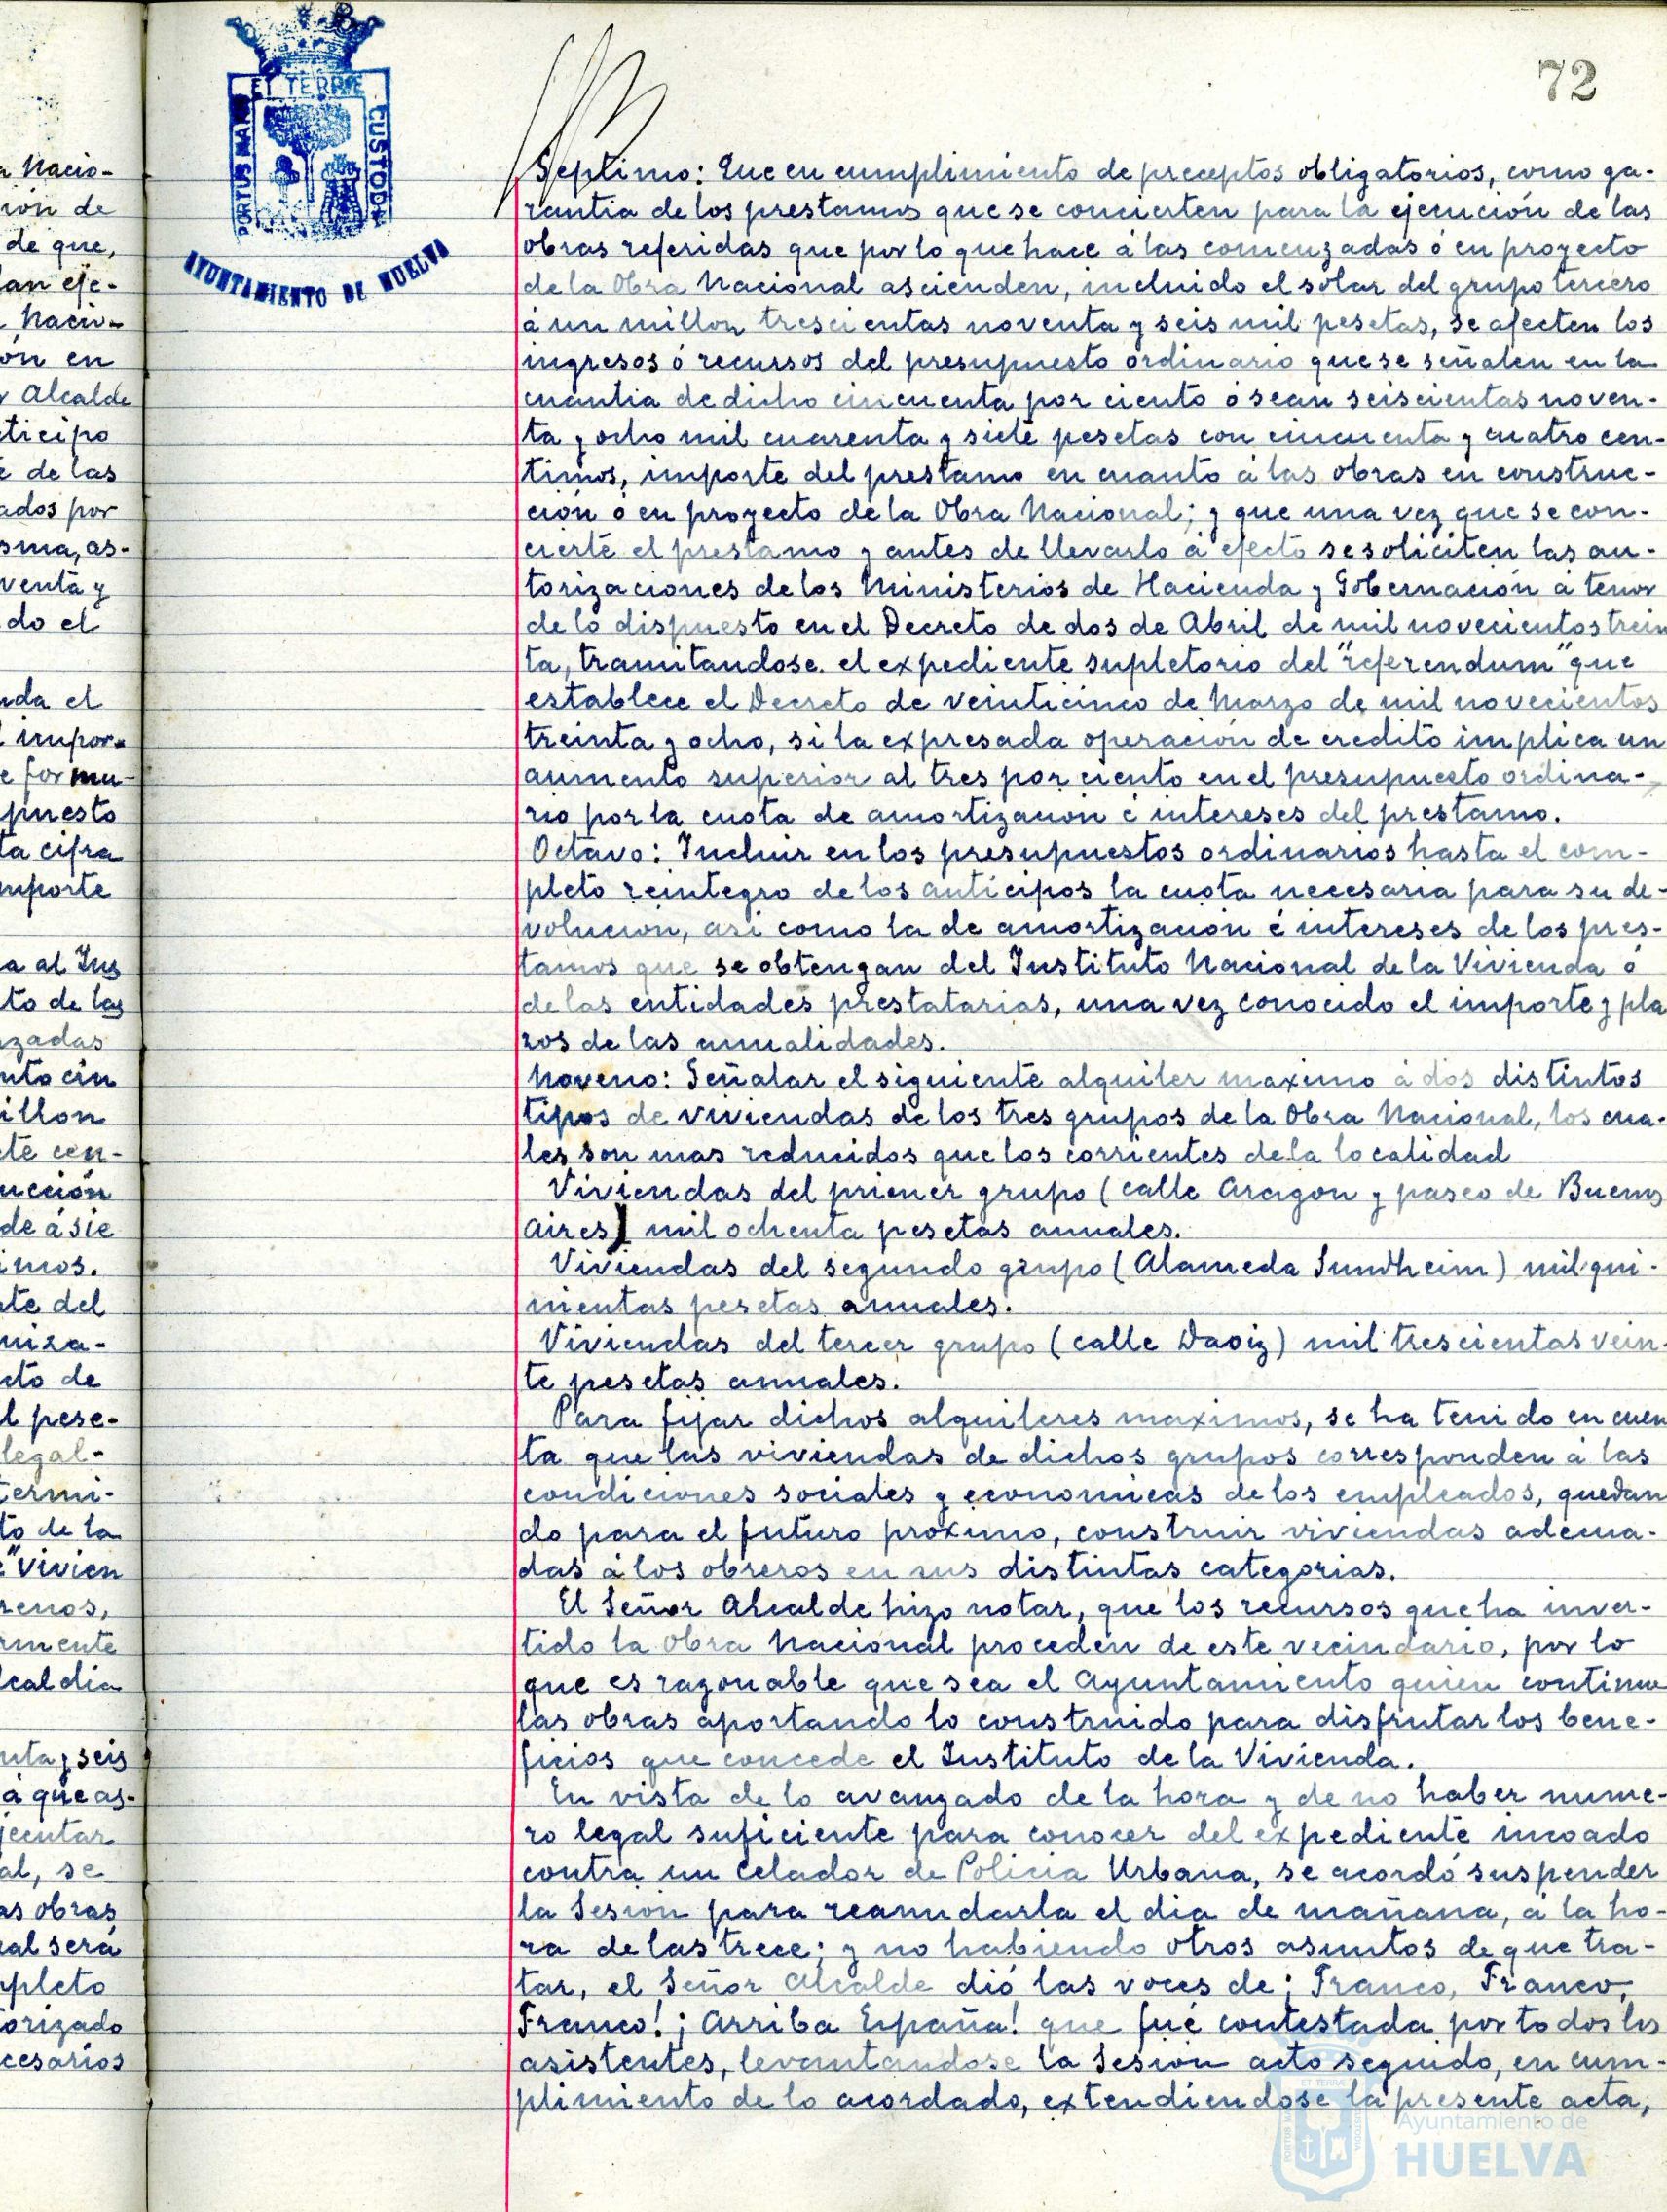 72
ET TERRÆ
PORTUS MARIS
CUSTODIA
AYUNTAMIENTO DE HUELVA
a Nacio-
ión de
de que,
an eje-
Nacio-
ón en
Alcalde
ticipo
e de las
ados por
sma, as-
venta y
do el
nda el
impor-
e formu-
puesto
ta cifra
mporte
a al Ins
to de las
nzadas
nto cin
illon
te cen-
ucción
de á sie
imos.
te del
niza-
cto de
l pese-
legal-
termi-
to de la
"vivien
renos,
rmente
lcaldia
nta y seis
a que as-
jecutar
al, se
as obras
ual será
mpleto
torizado
cesarios
Septimo: Que en cumplimiento de preceptos obligatorios, como ga-
rantia de los prestamos que se concierten para la ejecución de las
obras referidas que por lo que hace á las comenzadas ó en proyecto
de la Obra Nacional ascienden, incluido el solar del grupo tercero
á un millon trescientas noventa y seis mil pesetas, se afecten los
ingresos ó recursos del presupuesto ordinario que se señalen en la
cuantia de dicho cincuenta por ciento ó sean seiscientas noven-
ta y ocho mil cuarenta y siete pesetas con cincuenta y cuatro cen-
timos, importe del prestamo en cuanto á las obras en construc-
ción ó en proyecto de la Obra Nacional; y que una vez que se con-
cierte el prestamo y antes de llevarlo á efecto se soliciten las au-
torizaciones de los Ministerios de Hacienda y Gobernación á tenor
de lo dispuesto en el Decreto de dos de Abril de mil novecientos trein
ta, tramitandose. el expediente supletorio del "referendum" que
establece el Decreto de veinticinco de Marzo de mil novecientos
treinta y ocho, si la expresada operación de credito implica un
aumento superior al tres por ciento en el presupuesto ordina-
rio por la cuota de amortización é intereses del prestamo.
Octavo: Incluir en los presupuestos ordinarios hasta el com-
pleto reintegro de los anticipos la cuota necesaria para su de-
volucion, asi como la de amortización é intereses de los pres-
tamos que se obtengan del Instituto Nacional de la Vivienda ó
de las entidades prestatarias, una vez conocido el importe y pla
zos de las anualidades.
Noveno: Señalar el siguiente alquiler maximo á dos distintos
tipos de viviendas de los tres grupos de la Obra Nacional, los cua-
les son mas reducidos que los corrientes de la localidad
Viviendas del primer grupo (calle Aragon y paseo de Buenos
Aires) mil ochenta pesetas anuales.
Viviendas del segundo grupo (Alameda Sundheim) mil qui-
nientas pesetas anuales.
Viviendas del tercer grupo (calle Daoiz) mil trescientas vein-
te pesetas anuales.
Para fijar dichos alquileres maximos, se ha tenido en cuen
ta que las viviendas de dichos grupos corresponden á las
condiciones sociales y economicas de los empleados, quedan
do para el futuro próximo, construir viviendas adecua-
das á los obreros en sus distintas categorias.
El Señor Alcalde hizo notar, que los recursos que ha inver-
tido la Obra Nacional proceden de este vecindario, por lo
que es razonable que sea el Ayuntamiento quien continue
las obras aportando lo construido para disfrutar los bene-
ficios que concede el Instituto de la Vivienda.
En vista de lo avanzado de la hora y de no haber nume-
ro legal suficiente para conocer del expediente incoado
contra un Celador de Policia Urbana, se acordó suspender
la Sesión para reanudarla el dia de mañana, á la ho-
ra de las trece; y no habiendo otros asuntos de que tra-
tar, el Señor Alcalde dió las voces de ¡Franco, Franco,
Franco! ¡Arriba España! que fué contestada por todos los
asistentes, levantandose la Sesion acto seguido, en cum-
plimiento de lo acordado, extendiendose la presente acta,
Ayuntamiento de
HUELVA